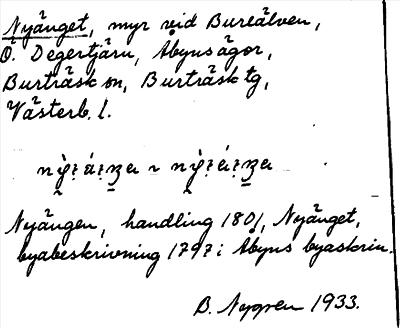 Nyänget, myr vid Bureälven,
Ö. Degertjärn, Åbyns ägor,
Burträsk sn, Burträsk tg,
Västerb. l.
Nyängen, handling 1801, Nyänget,
byabeskrivning 1797 i Åbyns byaskrin.
B. Nygren 1933.